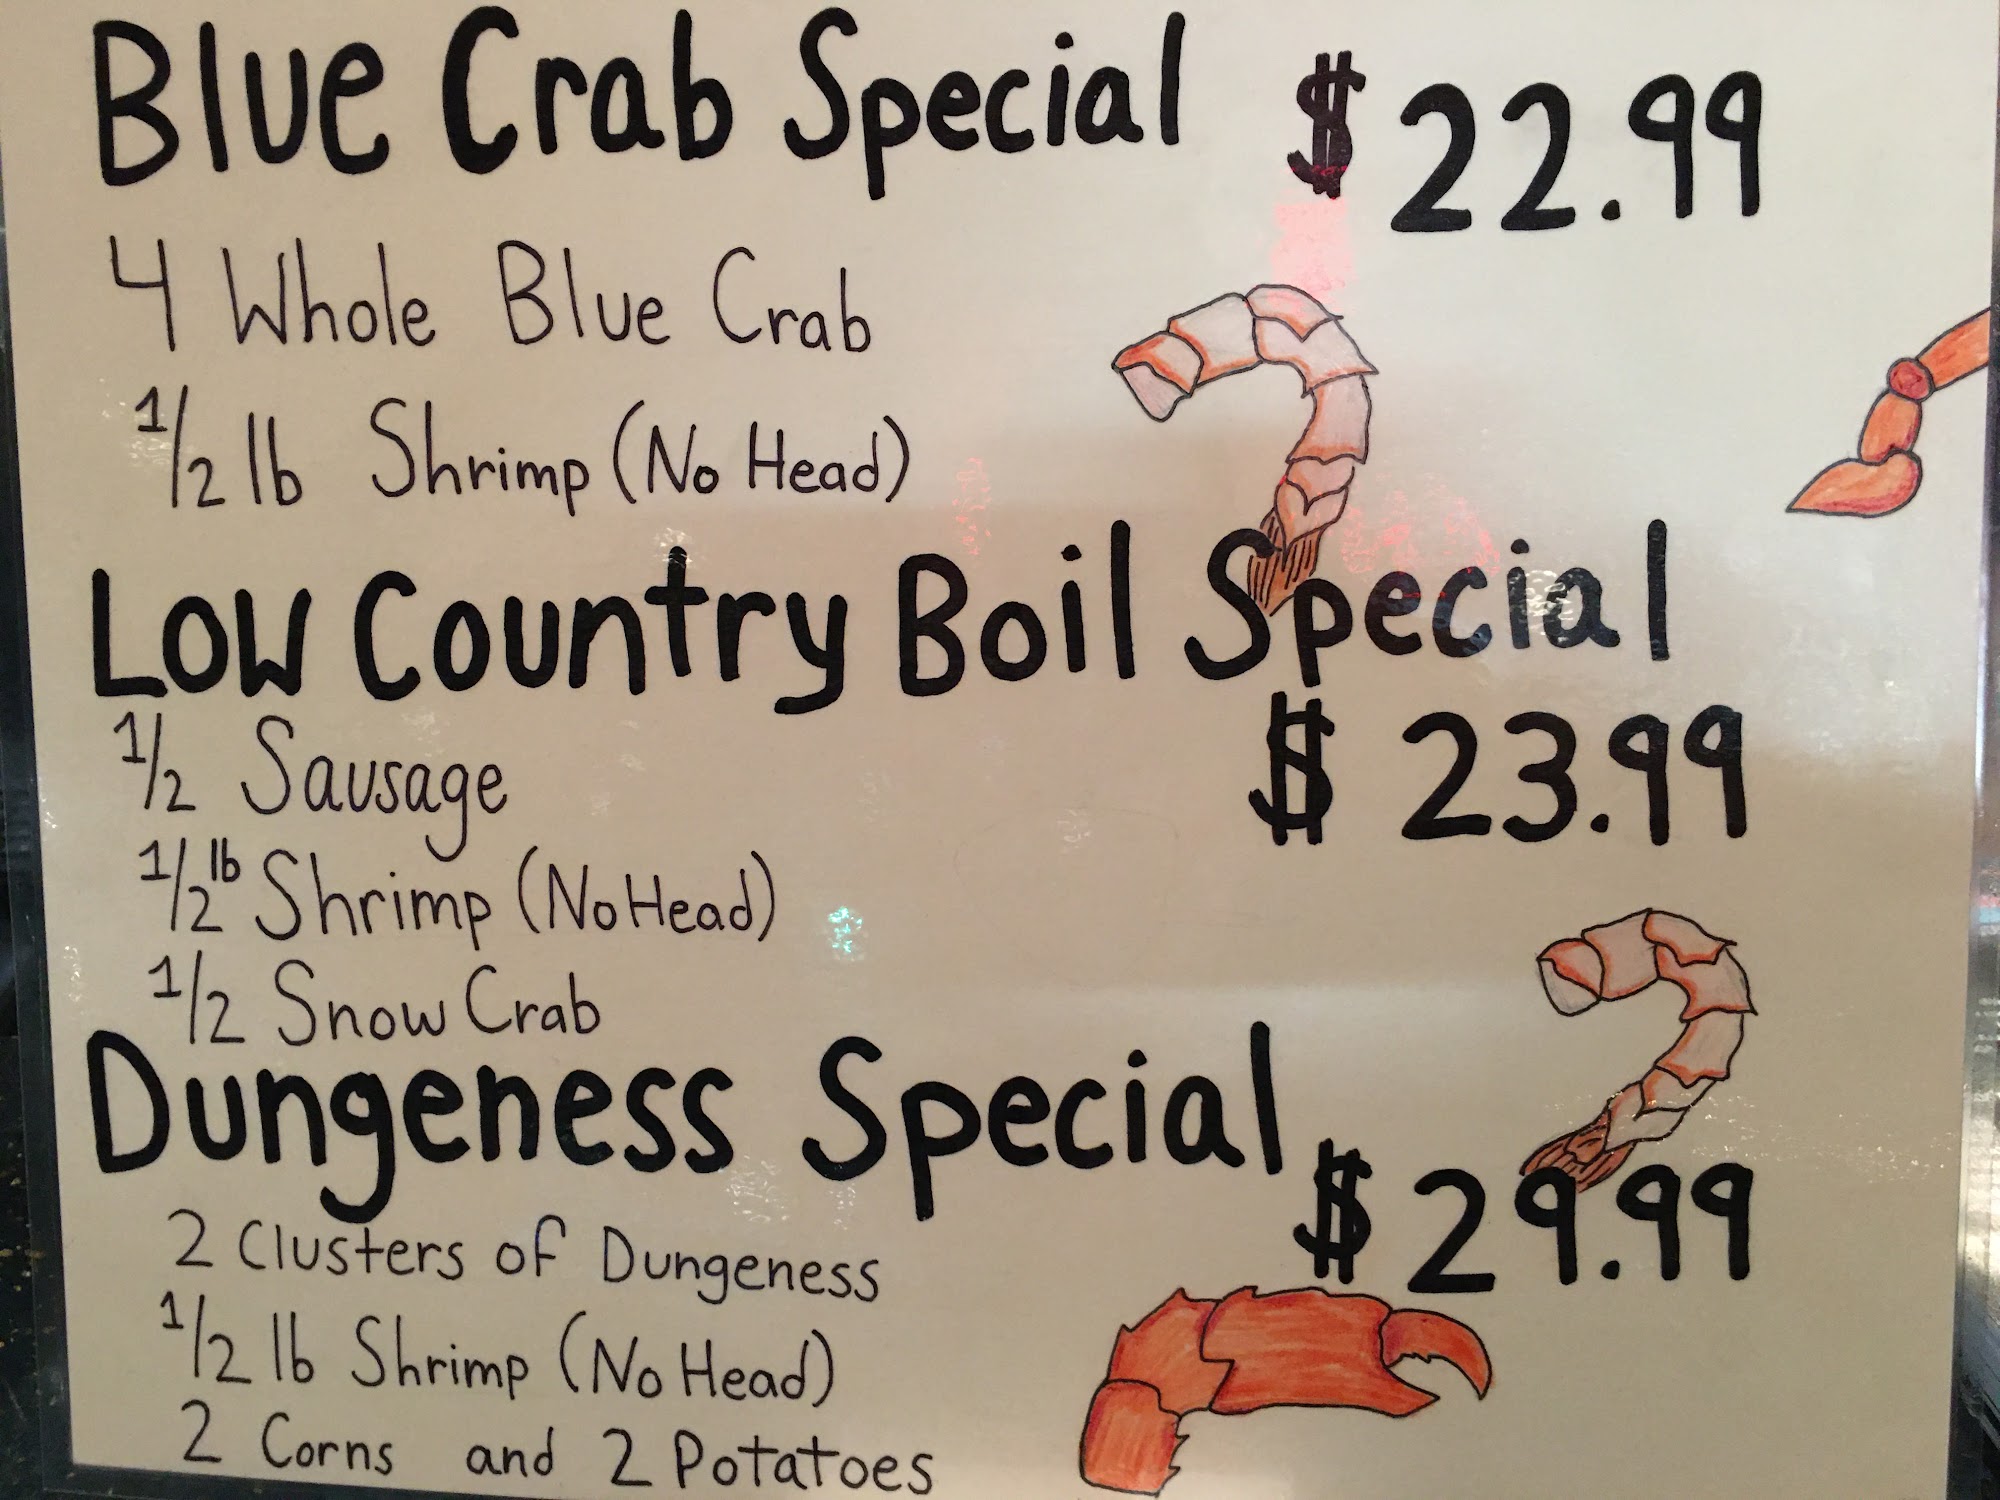 Blue Crab Special $22.99
4 Whole Blue Crab
1/2 lb Shrimp (No Head)
Low Country Boil Special
$23.99
1/2 Sausage
1/2 lb Shrimp (No Head)
1/2 Snow Crab
Dungeness Special
$29.99
2 Clusters of Dungeness
1/2 lb Shrimp (No Head)
2 Corns and 2 Potatoes